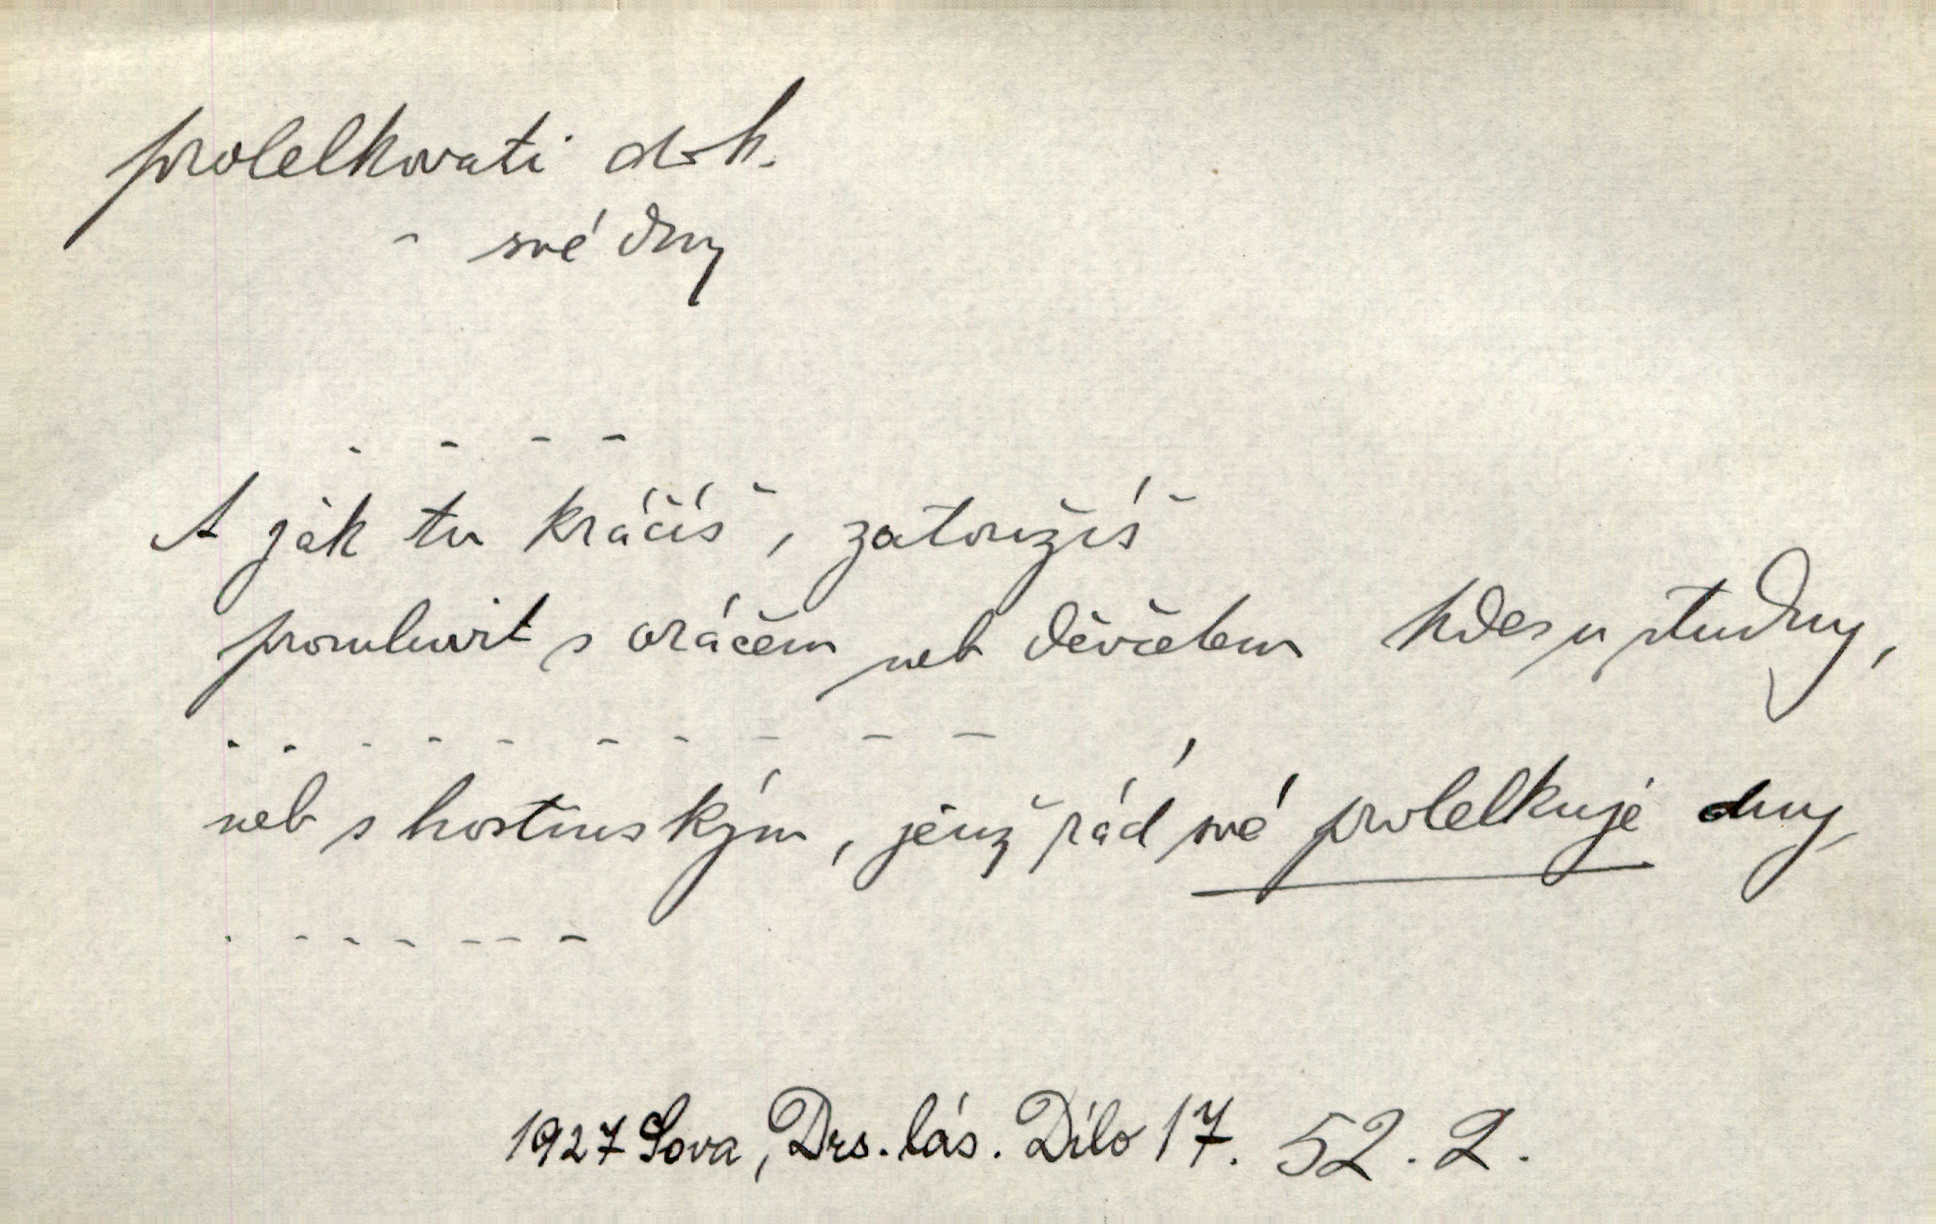 prolelkovati dok.
- své dny
- - - -
A jak tu kráčíš, zatoužíš
promluvit s oráčem neb děvčetem kdes u studny,
- - - - - - - - - -
neb s hostinským, jenž rád své prolelkuje dny
- - - - - - -
1927 Sova, Drs. lás. Dílo 17. 52. 2.